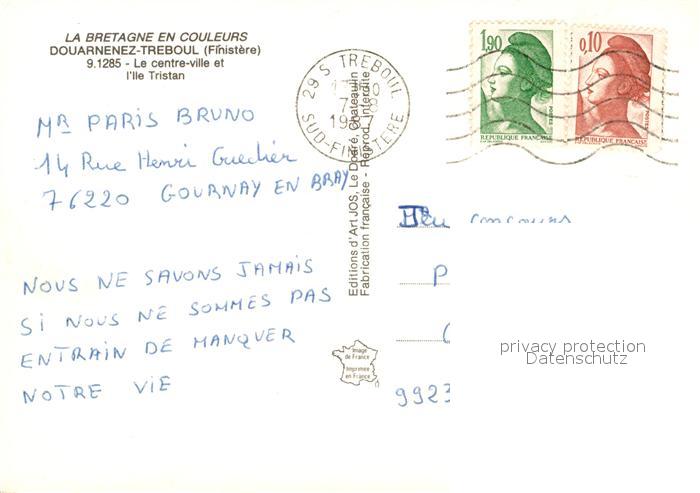 LA BRETAGNE EN COULEURS
DOUARNENEZ-TREBOUL (Finistère)
9.1285 - Le centre-ville et
l'Ile Tristan
MR PARIS BRUNO
14 Rue Henri
76220 GOURNAY EN BRAY
NOUS NE SAVONS JAMAIS
SI NOUS NE SOMMES PAS
ENTRAIN DE MANQUER
NOTRE VIE
29 S TREBOUL
SUD-FINISTERE
Editions d'Art JOS, Le Doaré, Chateaulin
Fabrication française - Reprod. Interdite
Image
de France
Imprimée
en France
1,90
POSTES
REPUBLIQUE FRANÇAISE
0,10
POSTES
REPUBLIQUE FRANÇAISE
P
9923
privacy protection
Datenschutz